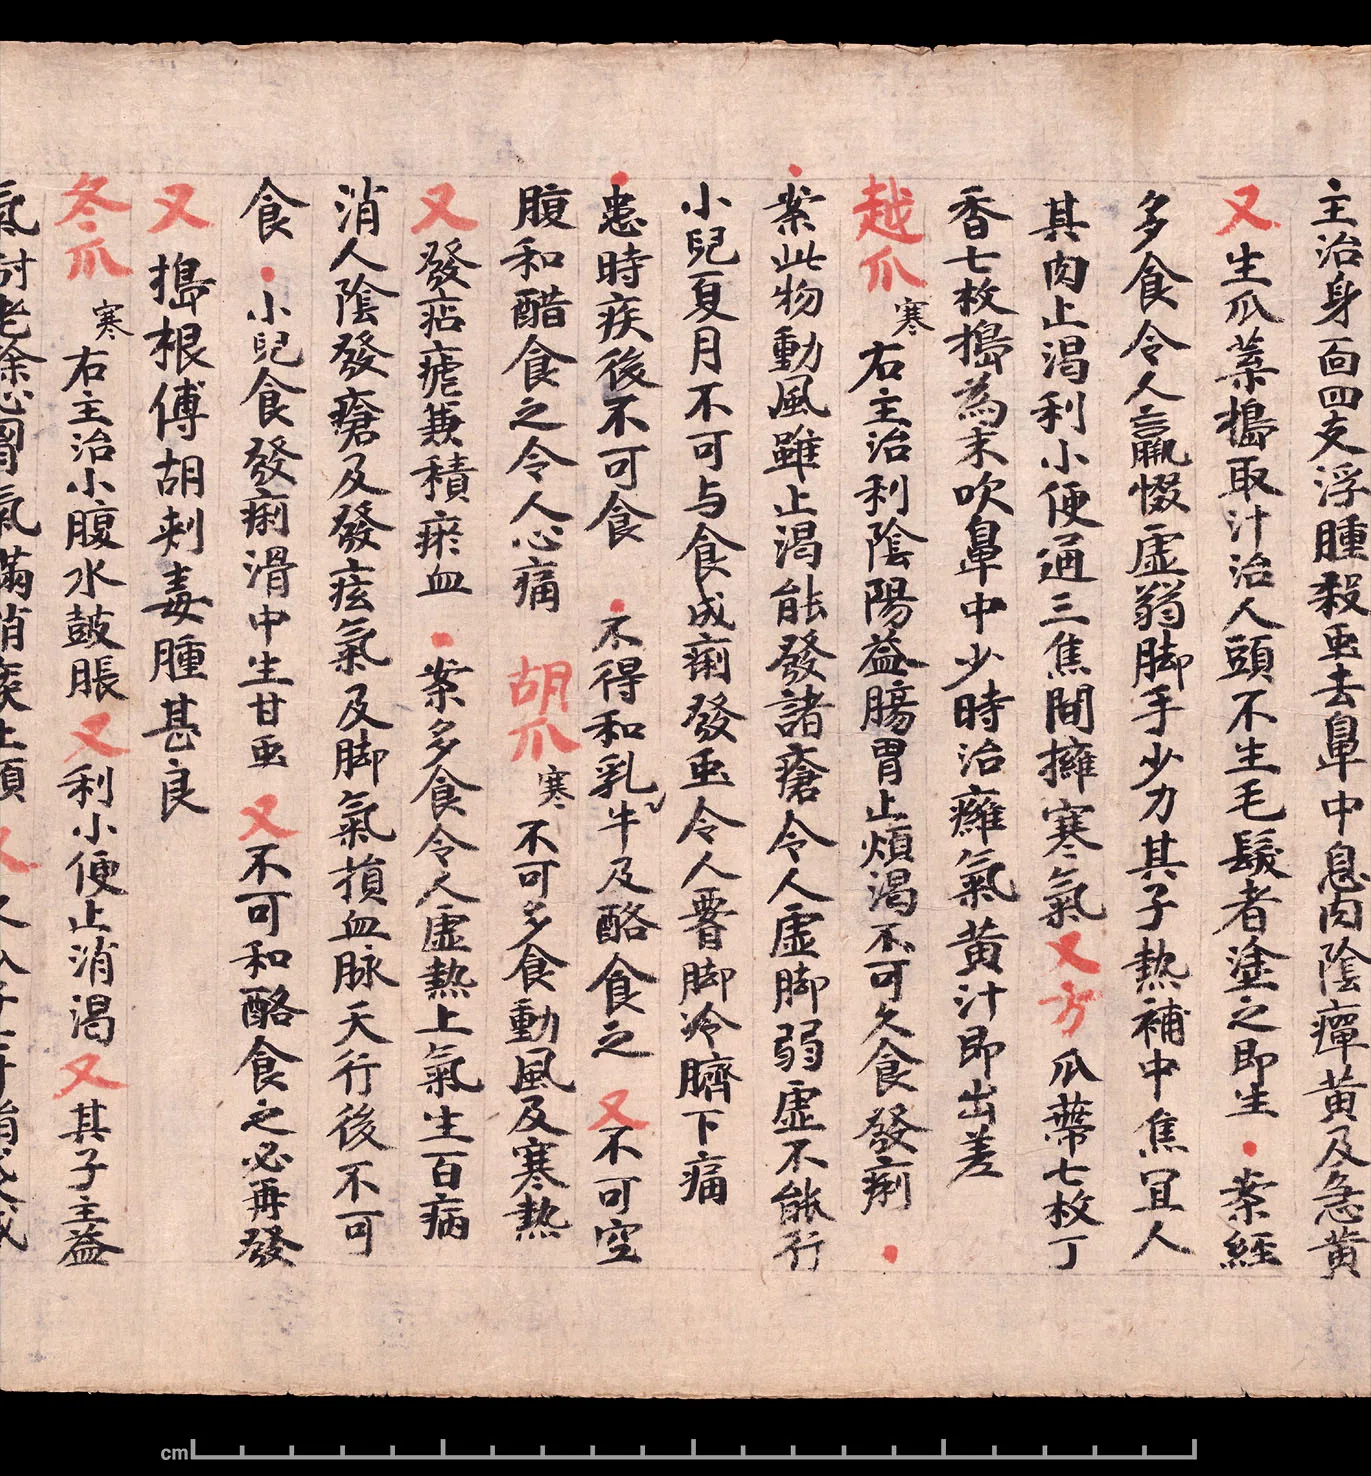 主治身面四支浮腫殺虫去鼻中息肉陰癉黄及急黄
又生瓜葉搗取汁治人頭不生毛髮者塗之即生 案經
多食令人羸惙虛弱脚手少力其子熱補中焦冝人
其肉止渴利小便通三焦間擁寒氣又方瓜蔕七枚丁
香七枚搗為末吹鼻中少時治癰氣黄汁即出差
越瓜 寒 右主治利陰陽益腸胃止煩渴不可久食發痢
案此物動風雖止渴能發諸瘡令人虛脚弱虛不能行
小兒夏月不可与食成痢發虫令人䐡脚冷臍下痛
患時疾後不可食 不得和乳牛及酪食之 又不可空
腹和醋食之令人心痛 胡瓜 寒 不可多食動風及寒熱
又發痁瘧兼積瘀血 案多食令人虛熱上氣生百病
消人陰發瘡及發痃氣及脚氣損血脉天行後不可
食 小兒食發痢滑中生甘虫 又不可和酪食之必再發
又 搗根傅胡刺毒腫甚良
冬瓜 寒 右主治小腹水鼓脹又利小便止消渴又其子主益